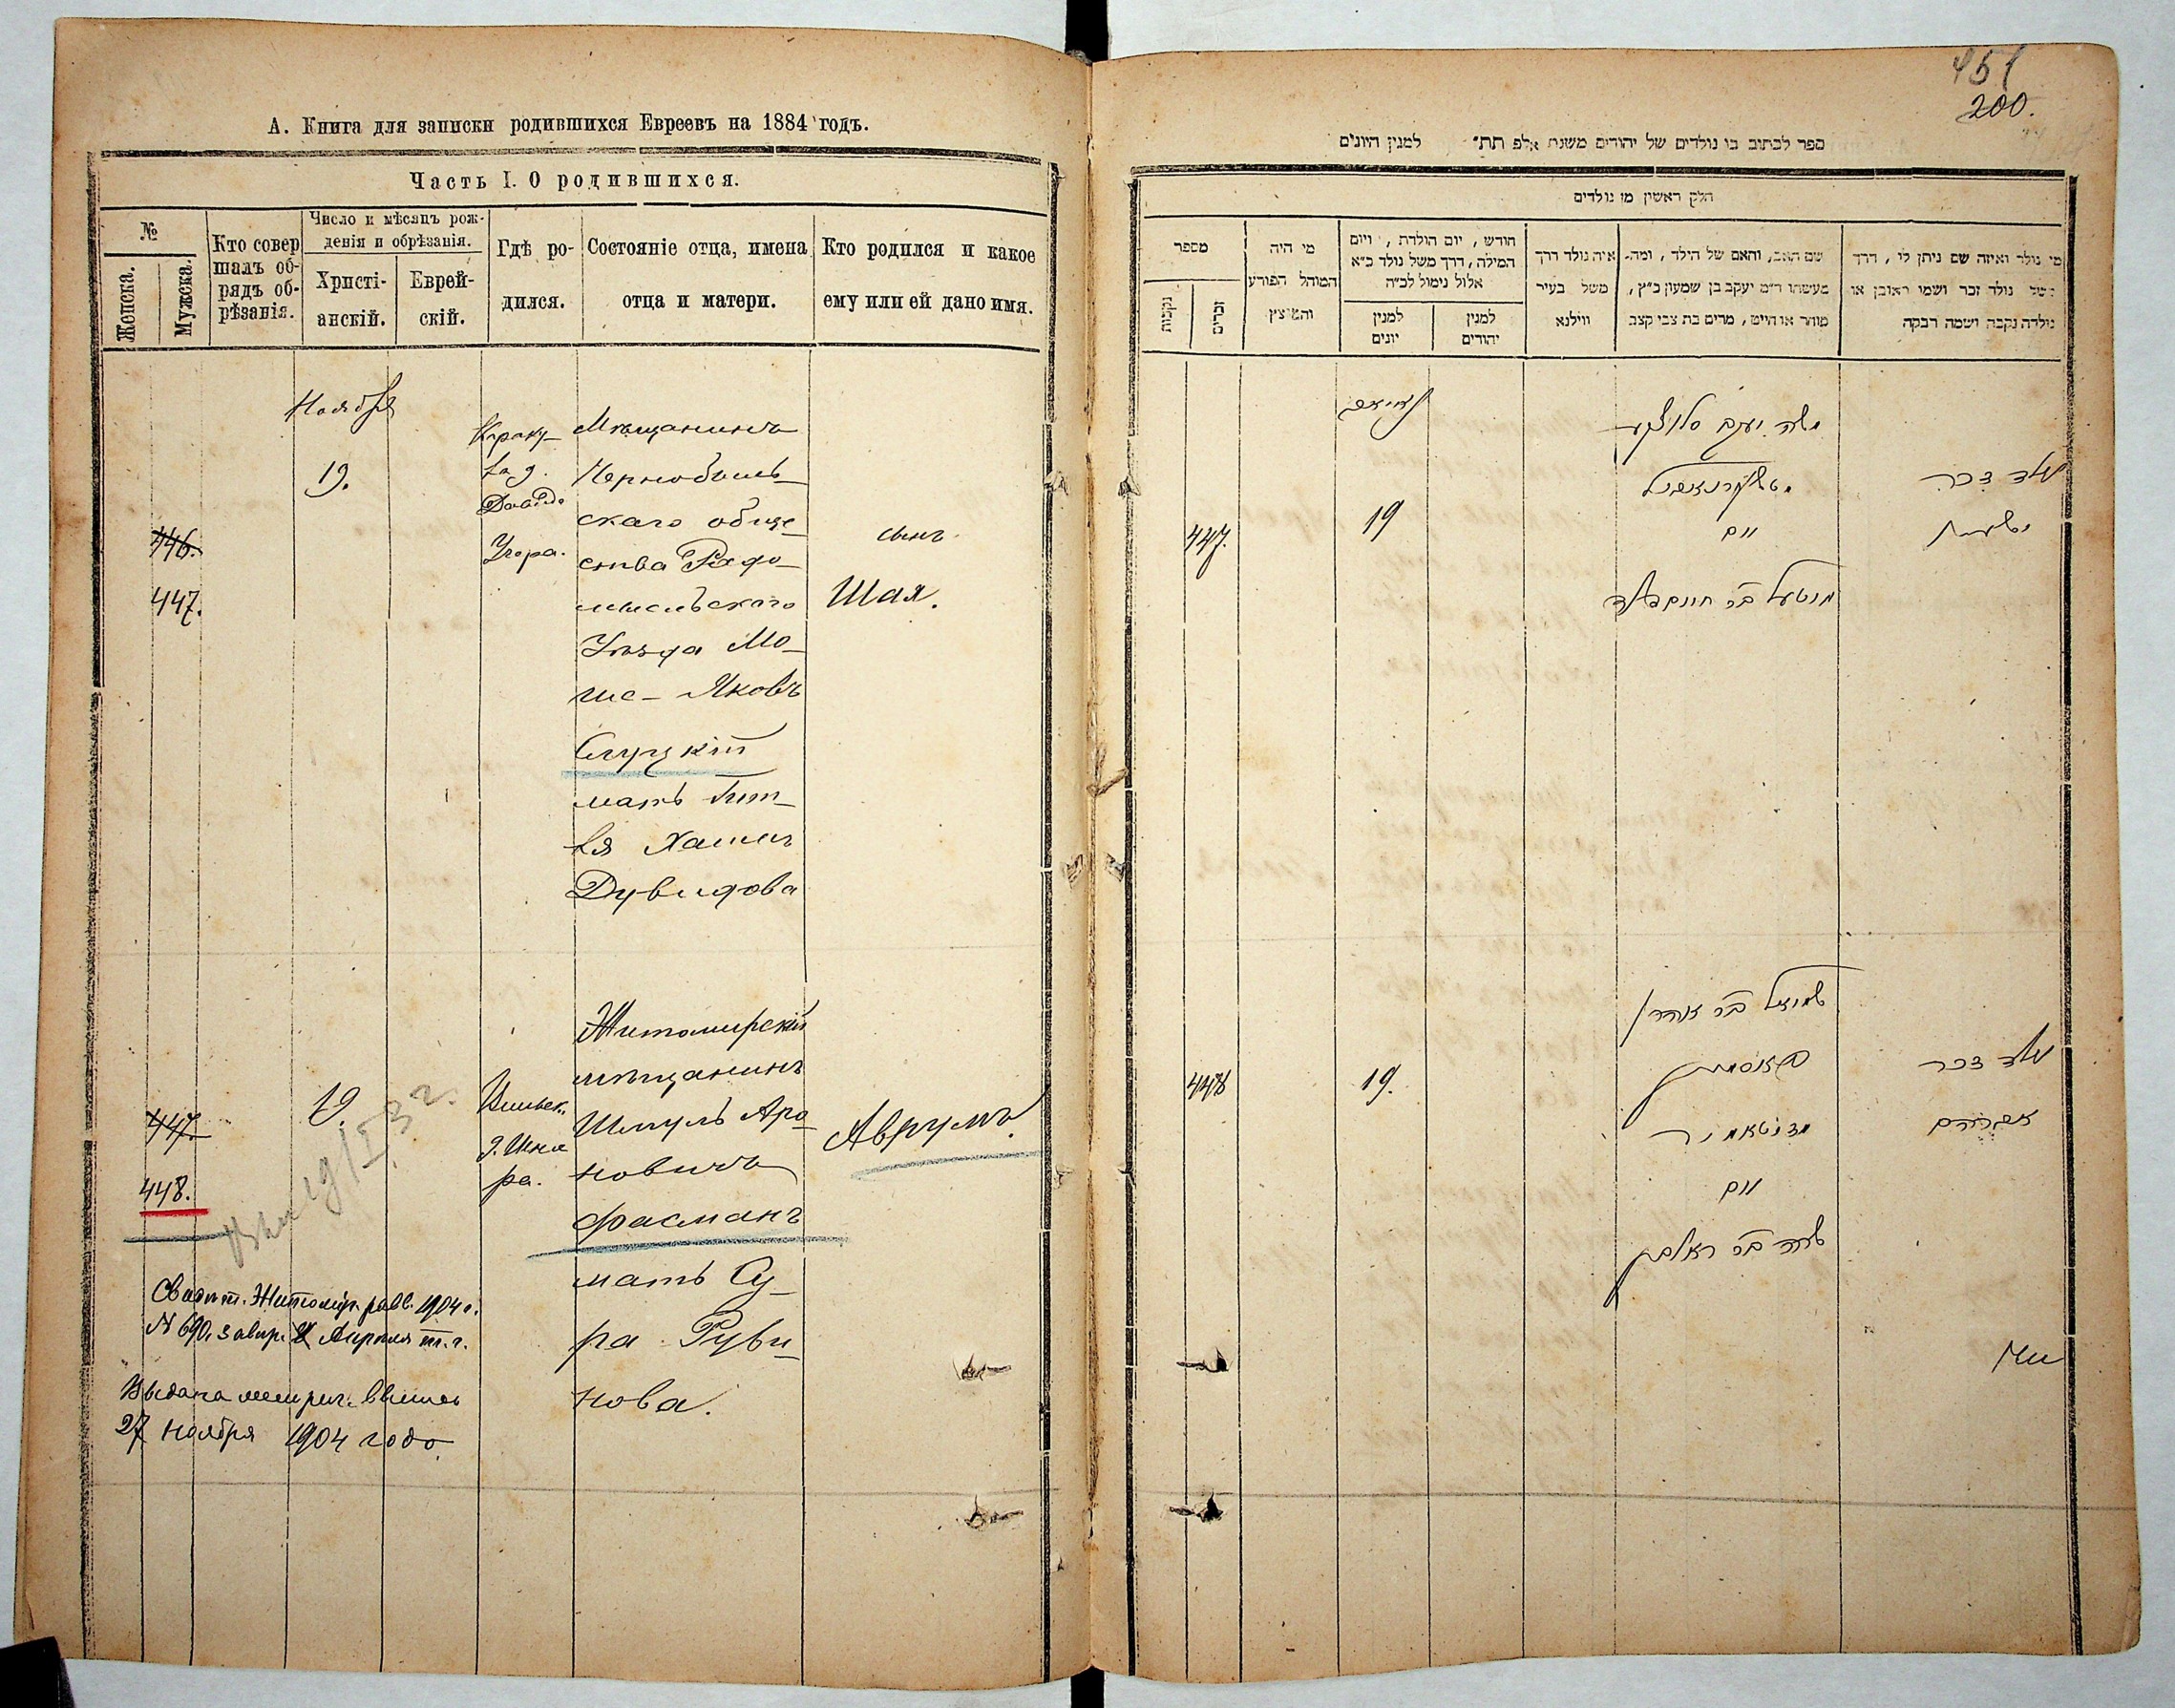 А. Книга для записки родившихся Евреевъ на 1884 годъ.
Часть I. О родившихся.
№
Женска.
Мужска.
Кто совер
шалъ об-
рядъ об-
рѣзанія.
Число и мѣсяцъ рож-
денія и обрѣзанія.
Христі-
анскій.
Еврей-
скій.
Гдѣ ро-
дился.
Состояніе отца, имена
отца и матери.
Кто родился и какое
ему или ей дано имя.
Ноября
446.
447.
19.
Мѣщанинъ
Чернобыль-
скаго обще-
ства Радо-
мысльскаго
Уѣзда Мо-
ше-Яковъ
Слуцкій
мать
Дувидова
сынъ
Шая.
447.
448.
19.
Житомирскій
мѣщанинъ
Шмуль Аро-
новичъ
Фасманъ
мать Су-
ра Руви-
нова.
Аврумъ
Житомир. равв. 1904 г.
N 690, Апрѣля т. г.
Выдана метрич. выпись
27 ноября 1904 года
451
200.
ספר לכתוב בו נולדים של יהודים משנת אלפ תת״ למנין היונים
חלק ראשון מן נולדים
מספר
נקבות
זכרים
מי היה
המוהל הפורע
והמוצץ
חודש, יום הולדת, ויום
המילה, דרך משל נולד כ״א
אלול נימול לכ״ה
למנין
יונים
למנין
יהודים
איה נולד דרך
משל בעיר
ווילנא
שם האב, והאם של הילד, ומה
מעשהו ד״מ יעקב בן שמעון כ״ץ,
סוחר או חייט, מרים בת צבי קצב
מי נולד ואיזה שם ניתן לו, דרך
משל נולד זכר ושמו ראובן או
נולדה נקבה ושמה רבקה
447.
19
משה יעקב סלוצקי
נולד זכר
448
19.
שמואל בר אהרן
פאסמאן
נולד זכר
אברהם